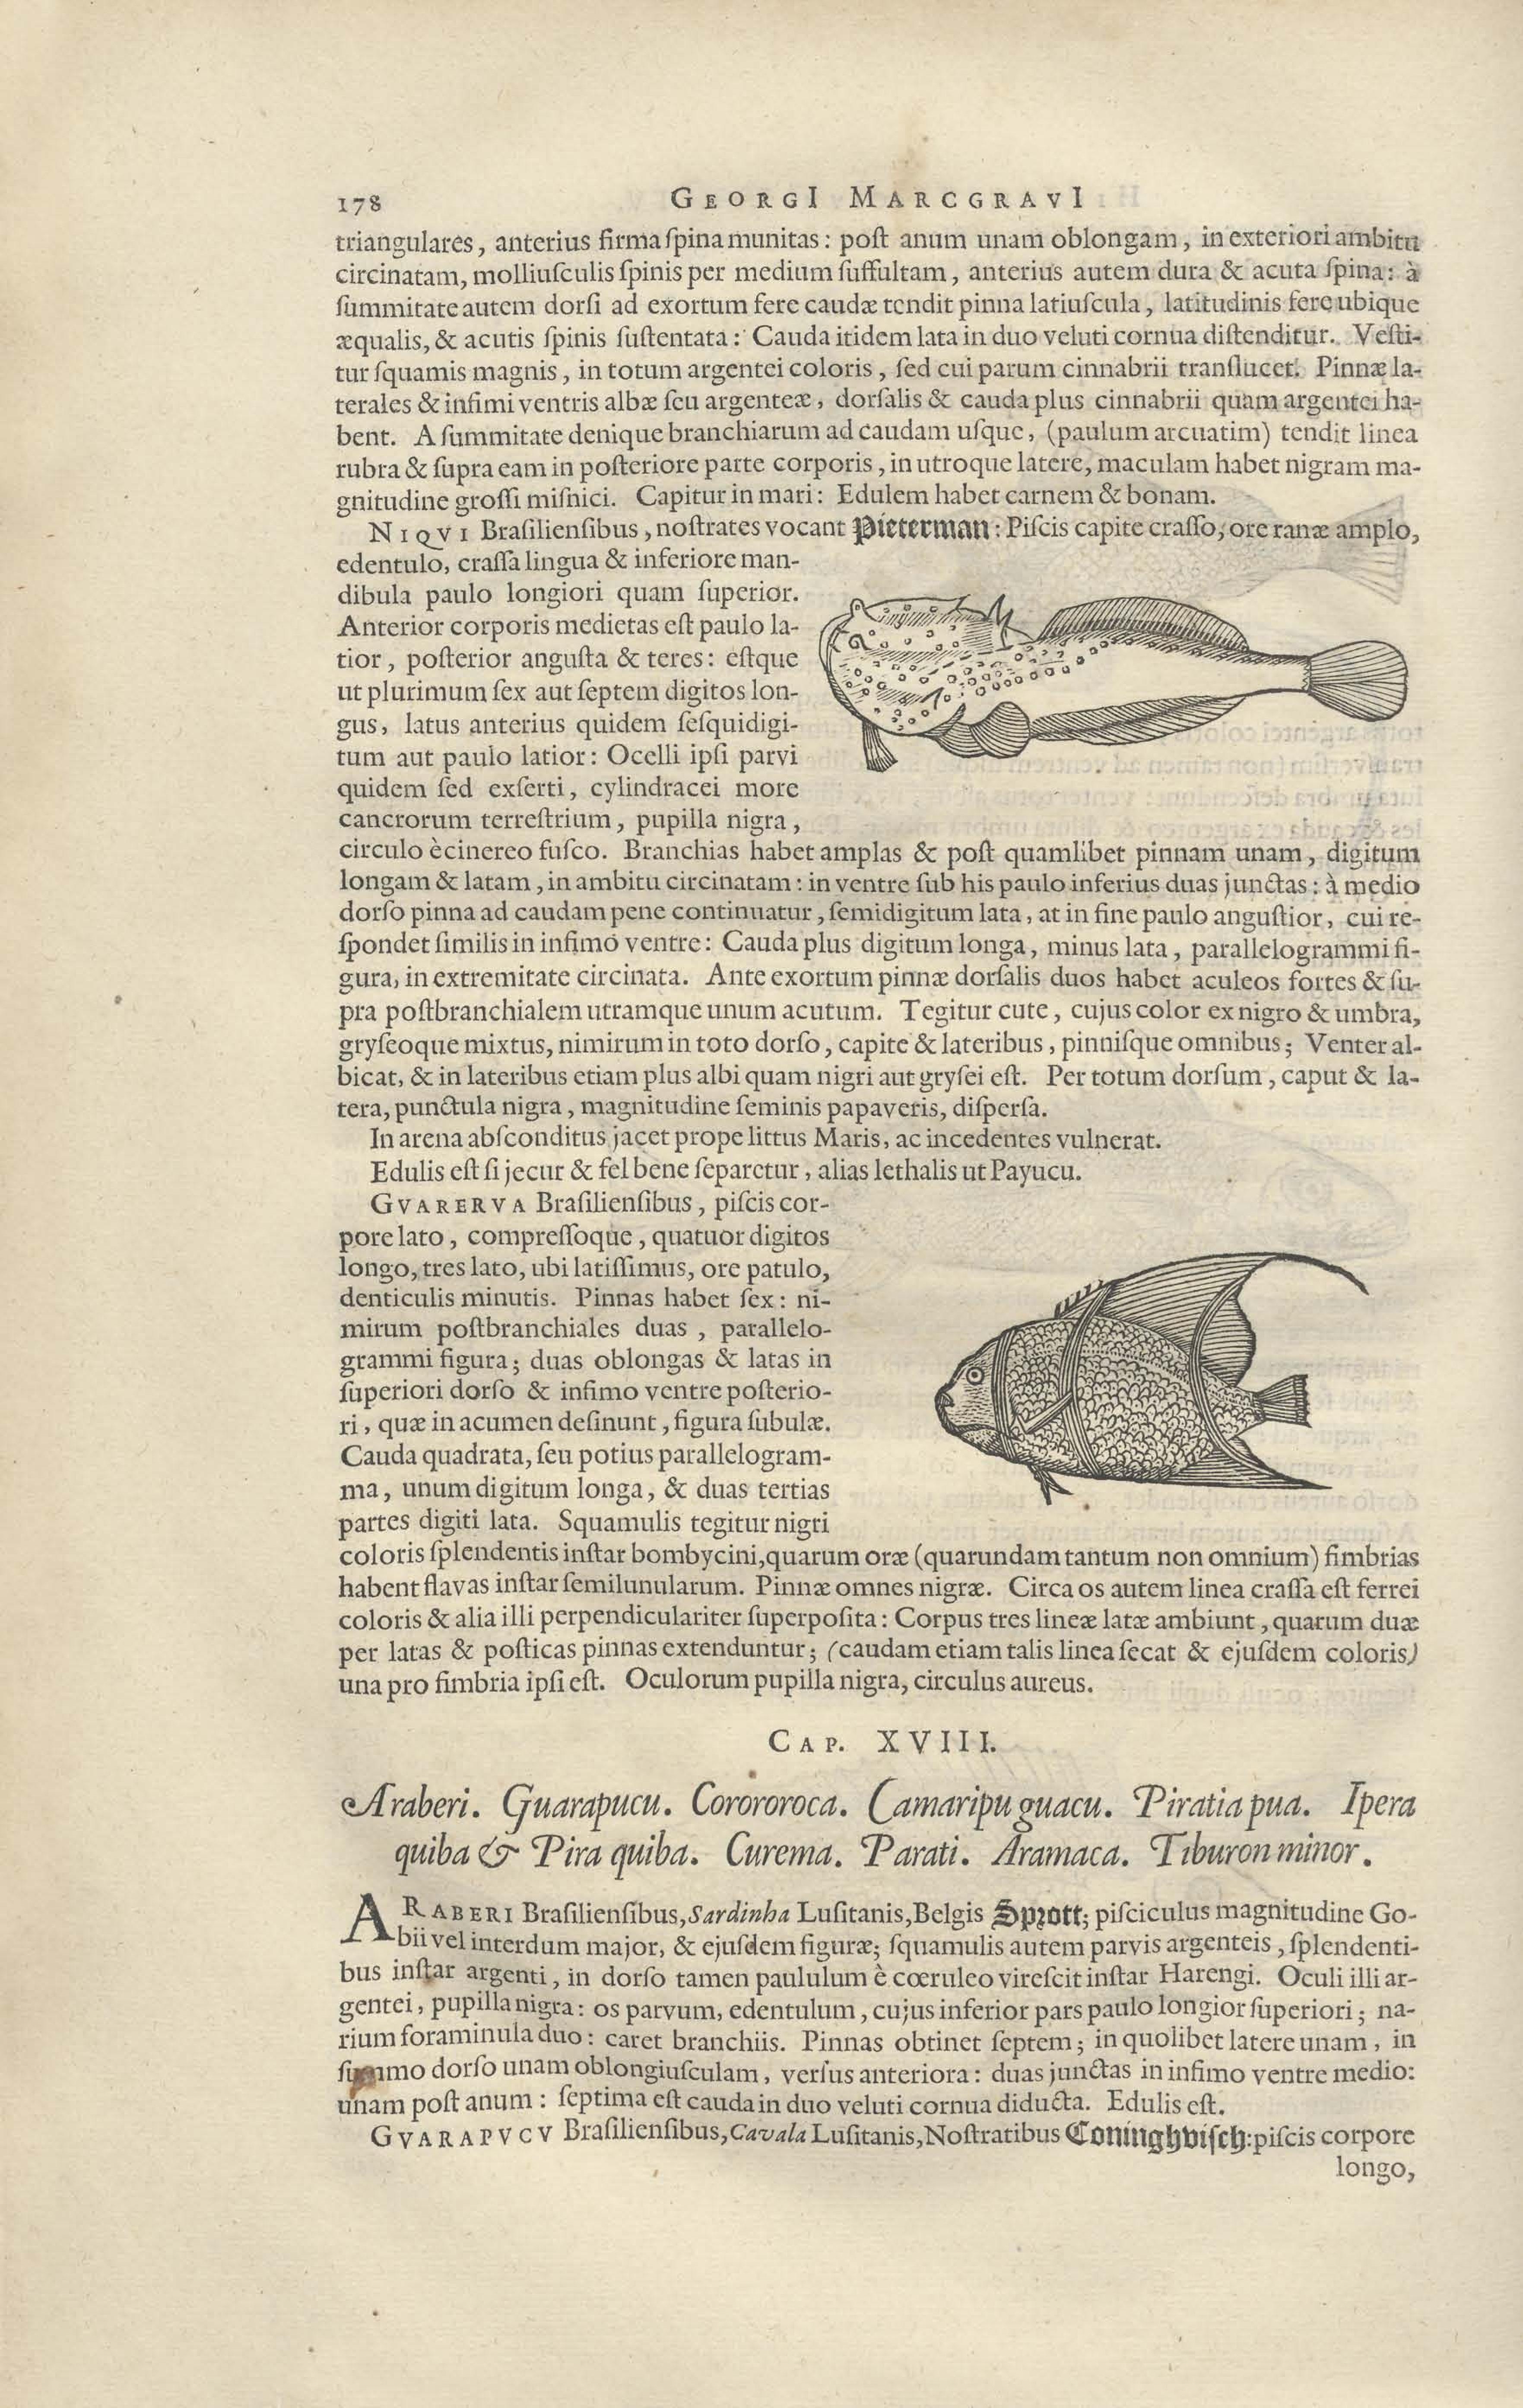 178 GEORGI MARCGRAVI
triangulares, anterius firma ſpina munitas: poſt anum unam oblongam, in exteriori ambitu
circinatam, molliuſculis ſpinis per medium ſuffultam, anterius autem dura & acuta ſpina: à
ſummitate autem dorſi ad exortum fere caudæ tendit pinna latiuſcula, latitudinis fere ubique
æqualis, & acutis ſpinis ſuſtentata: Cauda itidem lata in duo veluti cornua diſtenditur. Veſti-
tur ſquamis magnis, in totum argentei coloris, ſed cui parum cinnabrii tranſlucet. Pinnæ la-
terales & infimi ventris albæ ſeu argenteæ, dorſalis & cauda plus cinnabrii quam argentei ha-
bent. A ſummitate denique branchiarum ad caudam uſque, (paulum arcuatim) tendit linea
rubra & ſupra eam in poſteriore parte corporis, in utroque latere, maculam habet nigram ma-
gnitudine groſſi miſnici. Capitur in mari: Edulem habet carnem & bonam.
NIQVI Braſilienſibus, noſtrates vocant Pieterman: Piſcis capite craſſo, ore ranæ amplo,
edentulo, craſſa lingua & inferiore man-
dibula paulo longiori quam ſuperior.
Anterior corporis medietas eſt paulo la-
tior, poſterior anguſta & teres: eſtque
ut plurimum ſex aut ſeptem digitos lon-
gus, latus anterius quidem ſeſquidigi-
tum aut paulo latior: Ocelli ipſi parvi
quidem ſed exſerti, cylindracei more
cancrorum terreſtrium, pupilla nigra,
circulo è cinereo fuſco. Branchias habet amplas & poſt quamlibet pinnam unam, digitum
longam & latam, in ambitu circinatam: in ventre ſub his paulo inferius duas junctas: à medio
dorſo pinna ad caudam pene continuatur, ſemidigitum lata, at in fine paulo anguſtior, cui re-
ſpondet ſimilis in infimo ventre: Cauda plus digitum longa, minus lata, parallelogrammi fi-
gura, in extremitate circinata. Ante exortum pinnæ dorſalis duos habet aculeos fortes & ſu-
pra poſtbranchialem utramque unum acutum. Tegitur cute, cujus color ex nigro & umbra,
gryſeoque mixtus, nimirum in toto dorſo, capite & lateribus, pinniſque omnibus; Venter al-
bicat, & in lateribus etiam plus albi quam nigri aut gryſei eſt. Per totum dorſum, caput & la-
tera, punctula nigra, magnitudine ſeminis papaveris, diſperſa.
In arena abſconditus jacet prope littus Maris, ac incedentes vulnerat.
Edulis eſt ſi jecur & fel bene ſeparetur, alias lethalis ut Payucu.
GVARERVA Braſilienſibus, piſcis cor-
pore lato, compreſſoque, quatuor digitos
longo, tres lato, ubi latiſſimus, ore patulo,
denticulis minutis. Pinnas habet ſex: ni-
mirum poſtbranchiales duas, parallelo-
grammi figura; duas oblongas & latas in
ſuperiori dorſo & infimo ventre poſterio-
ri, quæ in acumen deſinunt, figura ſubulæ.
Cauda quadrata, ſeu potius parallelogram-
ma, unum digitum longa, & duas tertias
partes digiti lata. Squamulis tegitur nigri
coloris ſplendentis inſtar bombycini, quarum oræ (quarundam tantum non omnium) fimbrias
habent flavas inſtar ſemilunularum. Pinnæ omnes nigræ. Circa os autem linea craſſa eſt ferrei
coloris & alia illi perpendiculariter ſuperpoſita: Corpus tres lineæ latæ ambiunt, quarum duæ
per latas & poſticas pinnas extenduntur; (caudam etiam talis linea ſecat & ejuſdem coloris)
una pro fimbria ipſi eſt. Oculorum pupilla nigra, circulus aureus.
CAP. XVIII.
Araberi. Guarapucu. Corororoca. Camaripu guacu. Piratia pua. Ipera
quiba & Pira quiba. Curema. Parati. Aramaca. Tiburon minor.
ARABERI Braſilienſibus, Sardinha Luſitanis, Belgis Sprott; piſciculus magnitudine Go-
bii vel interdum major, & ejuſdem figuræ; ſquamulis autem parvis argenteis, ſplendenti-
bus inſtar argenti, in dorſo tamen paululum è cœruleo vireſcit inſtar Harengi. Oculi illi ar-
gentei, pupilla nigra: os parvum, edentulum, cujus inferior pars paulo longior ſuperiori; na-
rium foraminula duo: caret branchiis. Pinnas obtinet ſeptem; in quolibet latere unam, in
ſummo dorſo unam oblongiuſculam, verſus anteriora: duas junctas in infimo ventre medio:
unam poſt anum: ſeptima eſt cauda in duo veluti cornua diducta. Edulis eſt.
GVARAPVCV Braſilienſibus, Cavala Luſitanis, Noſtratibus Coninghviſch: piſcis corpore
longo,